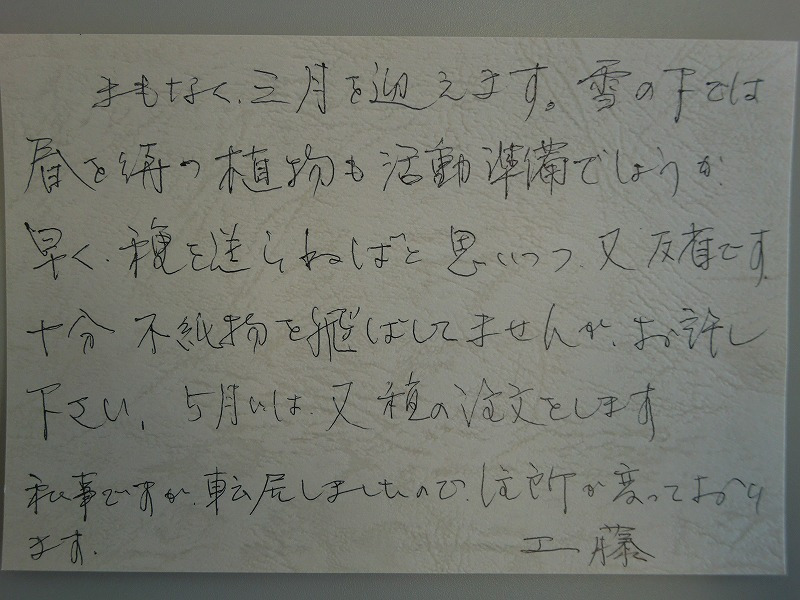 まもなく、三月を迎えます。雪の下では
春を待つ植物も活動準備でしょうか
早く、種を送らねばと思いつつ、又反省です。
十分 不純物を飛ばしてませんが、お許し
下さい、5月には、又種の注文をします
私事ですが、転居しましたので、住所が変っており
ます。 工藤